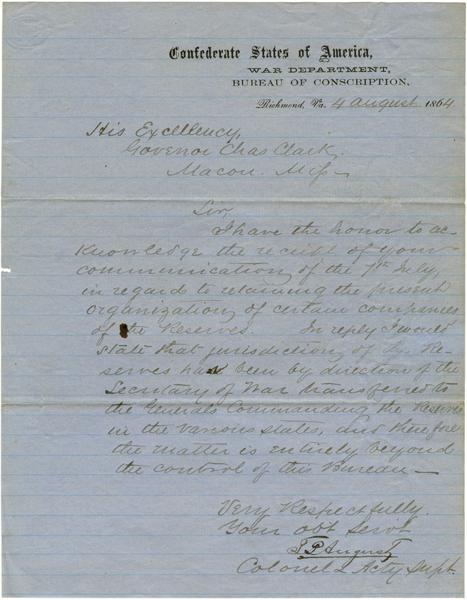 Confederate States of America,
WAR DEPARTMENT,
BUREAU OF CONSCRIPTION,
Richmond, Va. 4 August 1864
His Excellency,
Govenor Chas Clark,
Macon. Miss—
Sir,
I have the honor to ac-
knowledge the receipt of your
communication of the 7th July,
in regard to retaining the present
organization of certain companies
of the Reserves. In reply I would
state that jurisdiction of the Re-
serves has been by direction of the
Secretary of War transferred to
the Generals Commanding the Reserves
in the various states, and therefore
the matter is entirely beyond
the control of this Bureau—
Very Respectfully.
Your obt Servt
T P August
Colonel & Actg Supt.